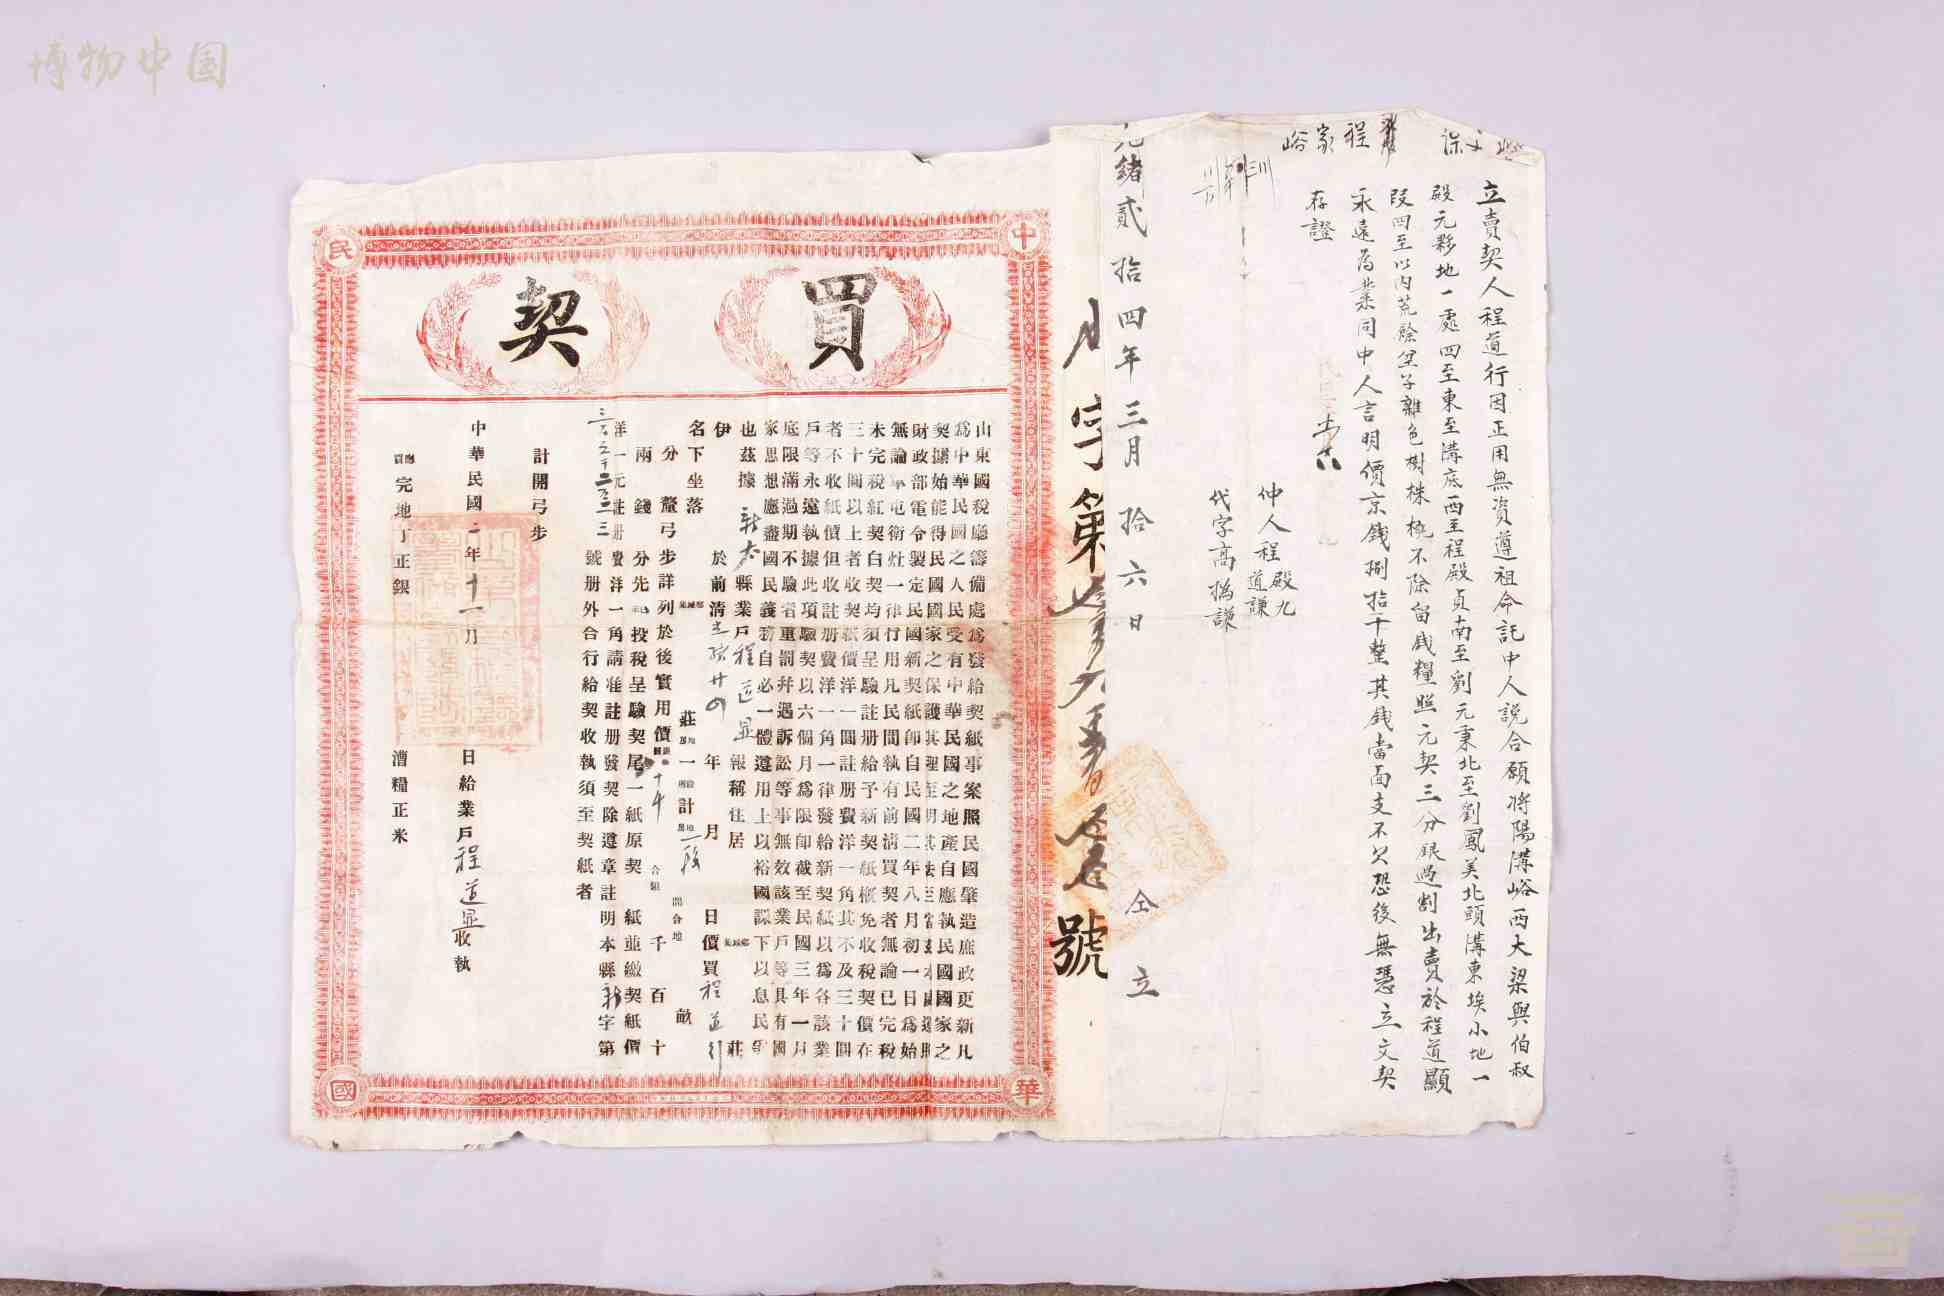 博物中国
程家峪
立賣契人程道行因正用無資遵祖命託中人說合願將陽溝峪西大梁與伯叔
殿元夥地一處四至東至溝底西至程殿貞南至劉元東北至劉鳳美北頭溝東埃小地一
段四至以內荒餘堂子雜色樹株檢不除留錢糧照元契三分銀過割出賣於程道顯
永遠為業同中人言明價京錢捌拾千整其錢當面支不欠恐後無憑立文契
存證
仲人程殿九
道謙
代字高撝謙
光緒貳拾四年三月拾六日 仝立
字第 號
中華民國
買契
山東國稅廳籌備處為發給契紙事案照民國肇造庶政更新凡
為中華民國之人民受有中華民國之地產自應執民國國家之
契據始能得民國國家之保護其理至明其法至當茲本處遵照
財政部電令製定民國新契紙即自民國二年八月初一日為始
無論軍屯衛灶一律行用凡民間執有前清買契者無論已完稅
未完稅紅契白契均須呈驗註册給予新契紙概免收稅契價在
三十圓以上者收契紙價洋一圓註册費洋一角其不及三十圓
者不收紙價但收註册費洋一角一律發給新契紙以為各該業
戶等永遠執據此項驗契以六個月為限即截至民國三年一月
底限滿過期不驗者重罰并遇訴訟等事無效該業戶等具有國
家思想應盡國民義務自必一體遵用上以裕國課下以息民爭
也茲據新泰縣業戶程道显報稱住居 莊
伊 於前清光緒廿四年 月 日價買程道行
名下坐落 莊 一 計 一段 畝
分 釐弓步詳列於後實用價 十千
兩 錢 分先 投稅呈驗契尾一紙原契 紙並繳契紙價
洋一元註册費洋一角請准註册發契除遵章註明本縣新字第
號册外合行給契收執須至契紙者
計開弓步
中華民國二年十一月 日給業戶程道显收執
完地丁正銀 漕糧正米